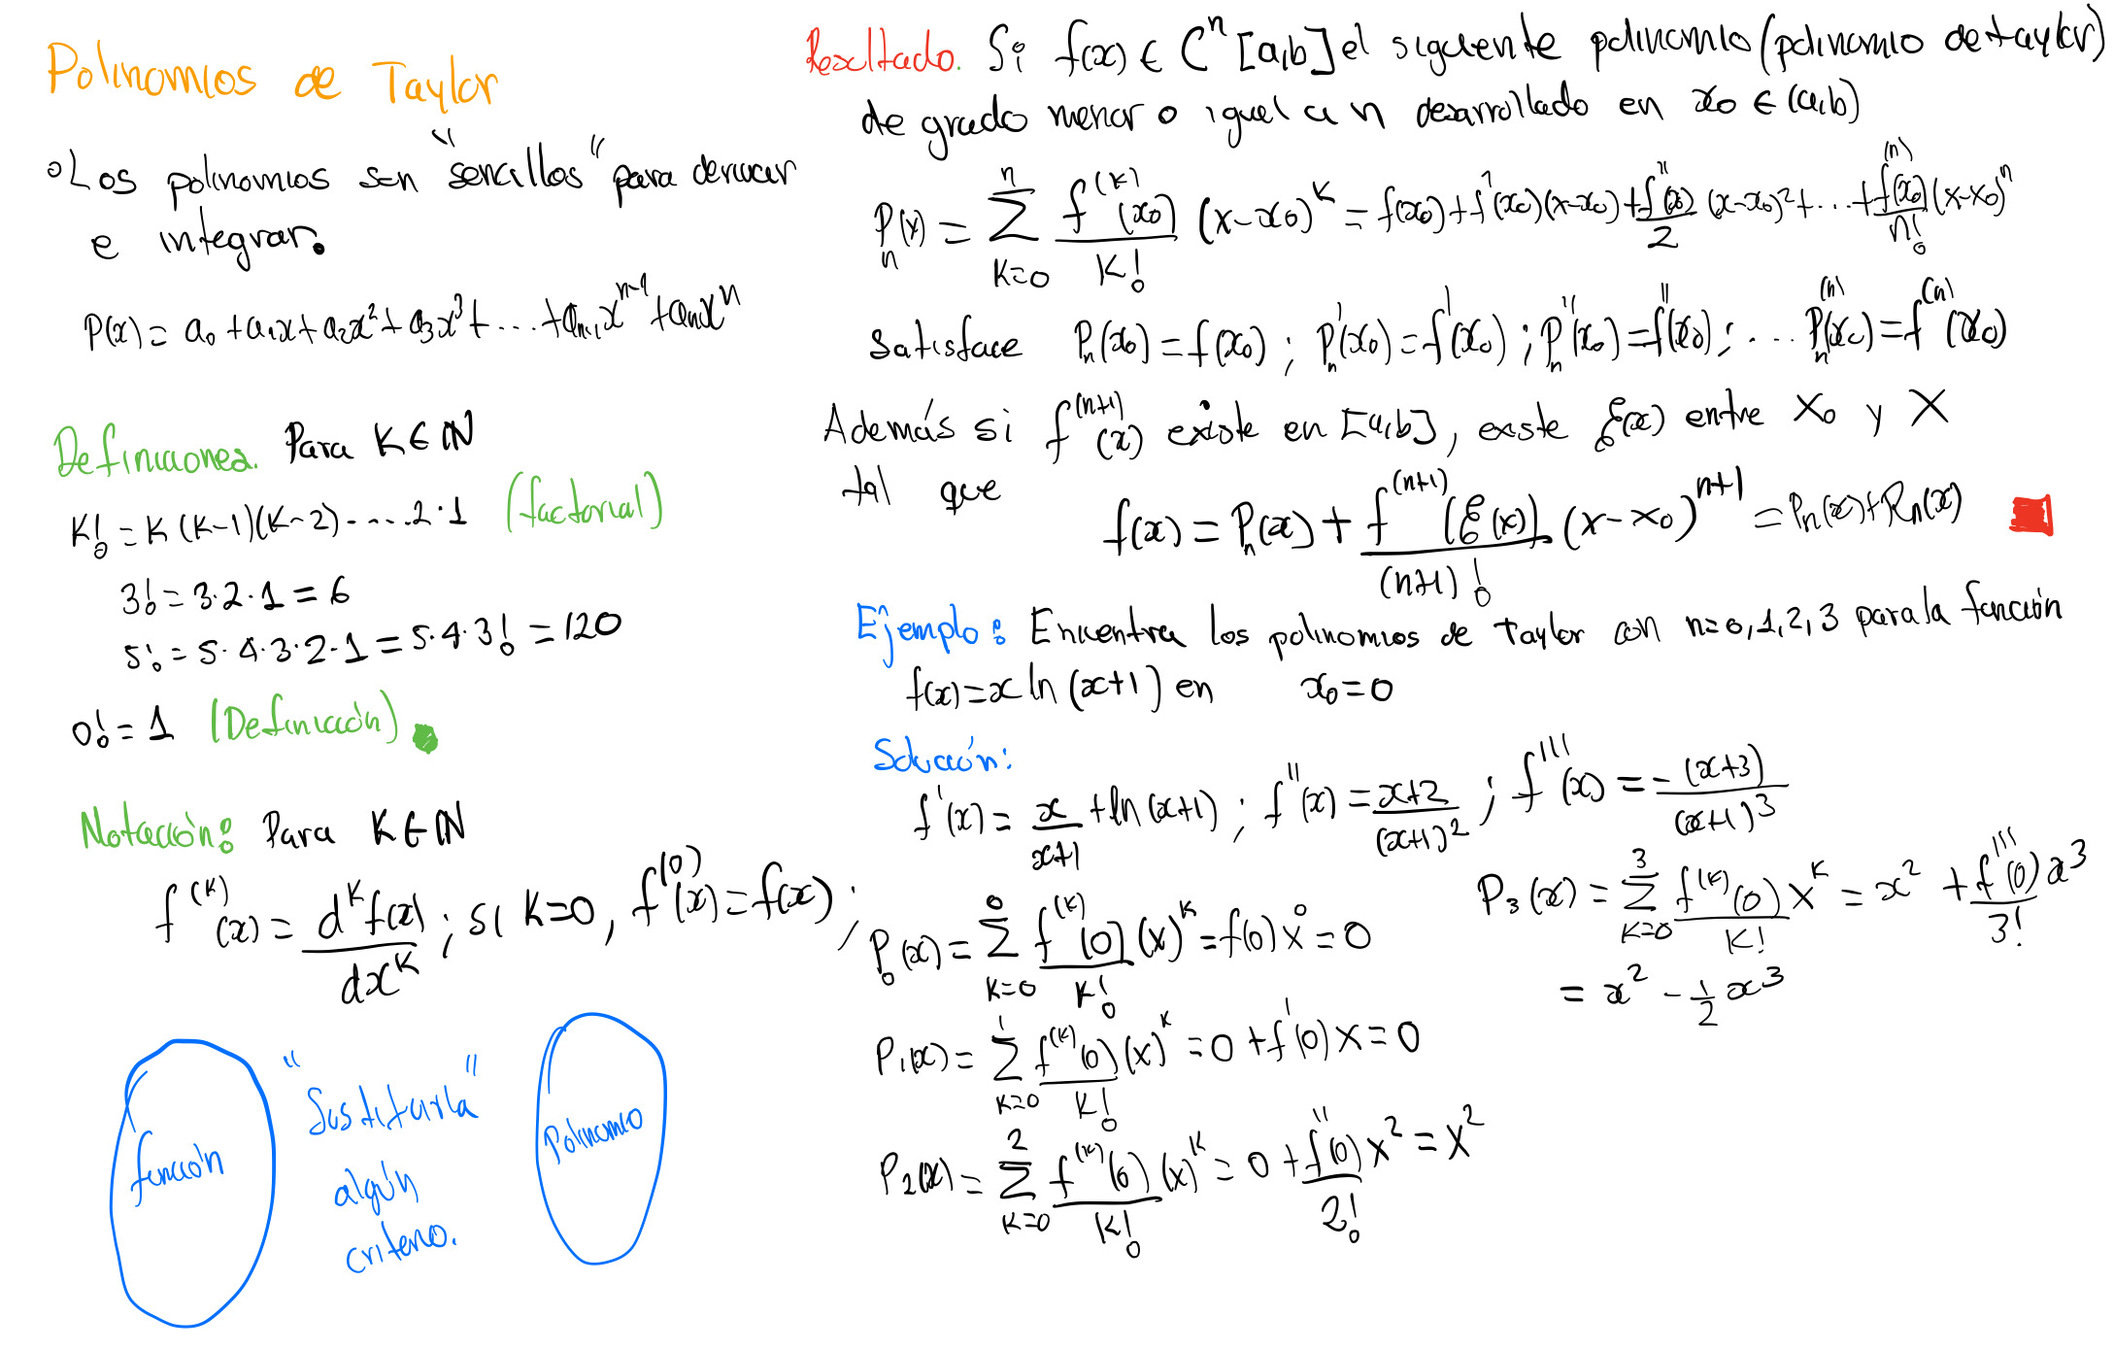 Polinomios de Taylor
◦Los polinomios son "sencillos" para derivar
e integrar.
P(x) = a₀ + a₁x + a₂x² + a₃x³ + ... + aₙ₋₁xⁿ⁻¹ + aₙxⁿ
Definiciones. Para K ∈ ℕ
K! = K (K-1)(K-2)-....2·1 (factorial)
3! = 3·2·1 = 6
5! = 5·4·3·2·1 = 5·4·3! = 120
0! = 1 (Definición)
Notación: Para K ∈ ℕ
f⁽ᴷ⁾(x) = dᴷf(x)/dxᴷ ; si K=0, f⁽⁰⁾(x) = f(x) ;
función
"Sustituirla"
algún
criterio.
Polinomio
Resultado. Si f(x) ∈ Cⁿ[a,b] el siguiente polinomio (polinomio de taylor)
de grado menor o igual a n desarrollado en x₀ ∈ (a,b)
Pₙ(x) = Σₖ₌₀ⁿ f⁽ᴷ⁾(x₀)/K! (x-x₀)ᴷ = f(x₀) + f'(x₀)(x-x₀) + f''(x₀)/2 (x-x₀)² + ... + f⁽ⁿ⁾(x₀)/n! (x-x₀)ⁿ
satisface Pₙ(x₀) = f(x₀) ; Pₙ'(x₀) = f'(x₀) ; Pₙ''(x₀) = f''(x₀) ; ... Pₙ⁽ⁿ⁾(x₀) = f⁽ⁿ⁾(x₀)
Además si f⁽ⁿ⁺¹⁾(x) existe en [a,b], existe ξ(x) entre x₀ y x
tal que
f(x) = Pₙ(x) + f⁽ⁿ⁺¹⁾(ξ(x))/(n+1)! (x-x₀)ⁿ⁺¹ = Pₙ(x) + Rₙ(x)
Ejemplo: Encuentra los polinomios de Taylor con n=0,1,2,3 para la función
f(x) = x ln(x+1) en x₀=0
Solución:
f'(x) = x/(x+1) + ln(x+1) ; f''(x) = (x+2)/(x+1)² ; f'''(x) = -(x+3)/(x+1)³
P₀(x) = Σₖ₌₀⁰ f⁽ᴷ⁾(0)/K! (x)ᴷ = f(0)x⁰ = 0
P₁(x) = Σₖ₌₀¹ f⁽ᴷ⁾(0)/K! (x)ᴷ = 0 + f'(0)x = 0
P₂(x) = Σₖ₌₀² f⁽ᴷ⁾(0)/K! (x)ᴷ = 0 + f''(0)/2! x² = x²
P₃(x) = Σₖ₌₀³ f⁽ᴷ⁾(0)/K! xᴷ = x² + f'''(0)/3! x³
= x² - 1/2 x³